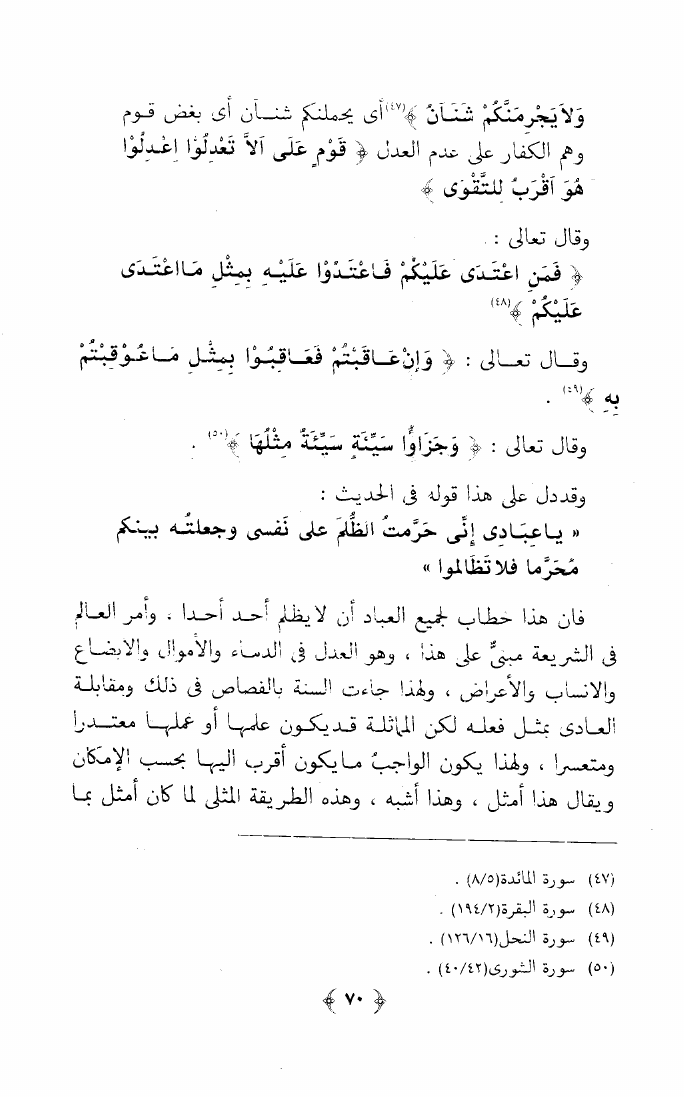 وَلاَيَجْرِمَنَّكُمْ شَنَآنُ ﴾(٤٧)أى يحملنكم شنـآن أى بغض قـوم
وهم الكفار على عدم العدل ﴿ قَوْمٍ عَلَى اَلاَّ تَعْدِلُوْا اِعْدِلُوْا
هُوَ اَقْرَبُ لِلتَّقْوَى ﴾
وقال تعالى :
﴿ فَمَنِ اعْتَدَى عَلَيْكُمْ فَاعْتَدُوْا عَلَيْهِ بِمِثْلِ مَااعْتَدَى
عَلَيْكُمْ ﴾(٤٨)
وقـال تعـالى : ﴿ وَاِنْ عَـاقَبْتُمْ فَعَـاقِبُـوْا بِمِثْـلِ مَـاعُـوْقِبْتُمْ
بِهِ ﴾(٤٩) .
وقال تعالى : ﴿ وَجَزَاوُّا سَيِّئَةٍ سَيِّئَةٌ مِثْلُهَا ﴾(٥٠) .
وقددل على هذا قوله فى الحديث :
« يـاعِبَـادِى إِنِّى حَرَّمتُ الظُّلمَ على نَفسى وجعلتُـه بينكم
مُحَرَّما فلا تَظَالموا »
فان هذا خطاب لجميع العباد أن لايظلم أحد أحدا ، وأمر العالم
فى الشريعة مبنىٌّ على هذا ، وهو العدل فى الدماء والأموال والابضاع
والانساب والأعراض ، ولهذا جاءت السنة بالقصاص فى ذلك ومقابلة
العادى بمثـل فعلـه لكن المماثلة قـديكـون علمها أو عملهـا معتـدرا
ومتعسرا ، ولهذا يكون الواجبُ مـايكون أقرب اليها بحسب الإمكان
ويقال هذا أمثل ، وهذا أشبه ، وهذه الطريقة المثلى لما كان أمثل بما
(٤٧) سورة المائدة(٨/٥) .
(٤٨) سورة البقرة(١٩٤/٢) .
(٤٩) سورة النحل(١٢٦/١٦) .
(٥٠) سورة الشورى(٤٠/٤٢) .
﴿ ٧٠ ﴾